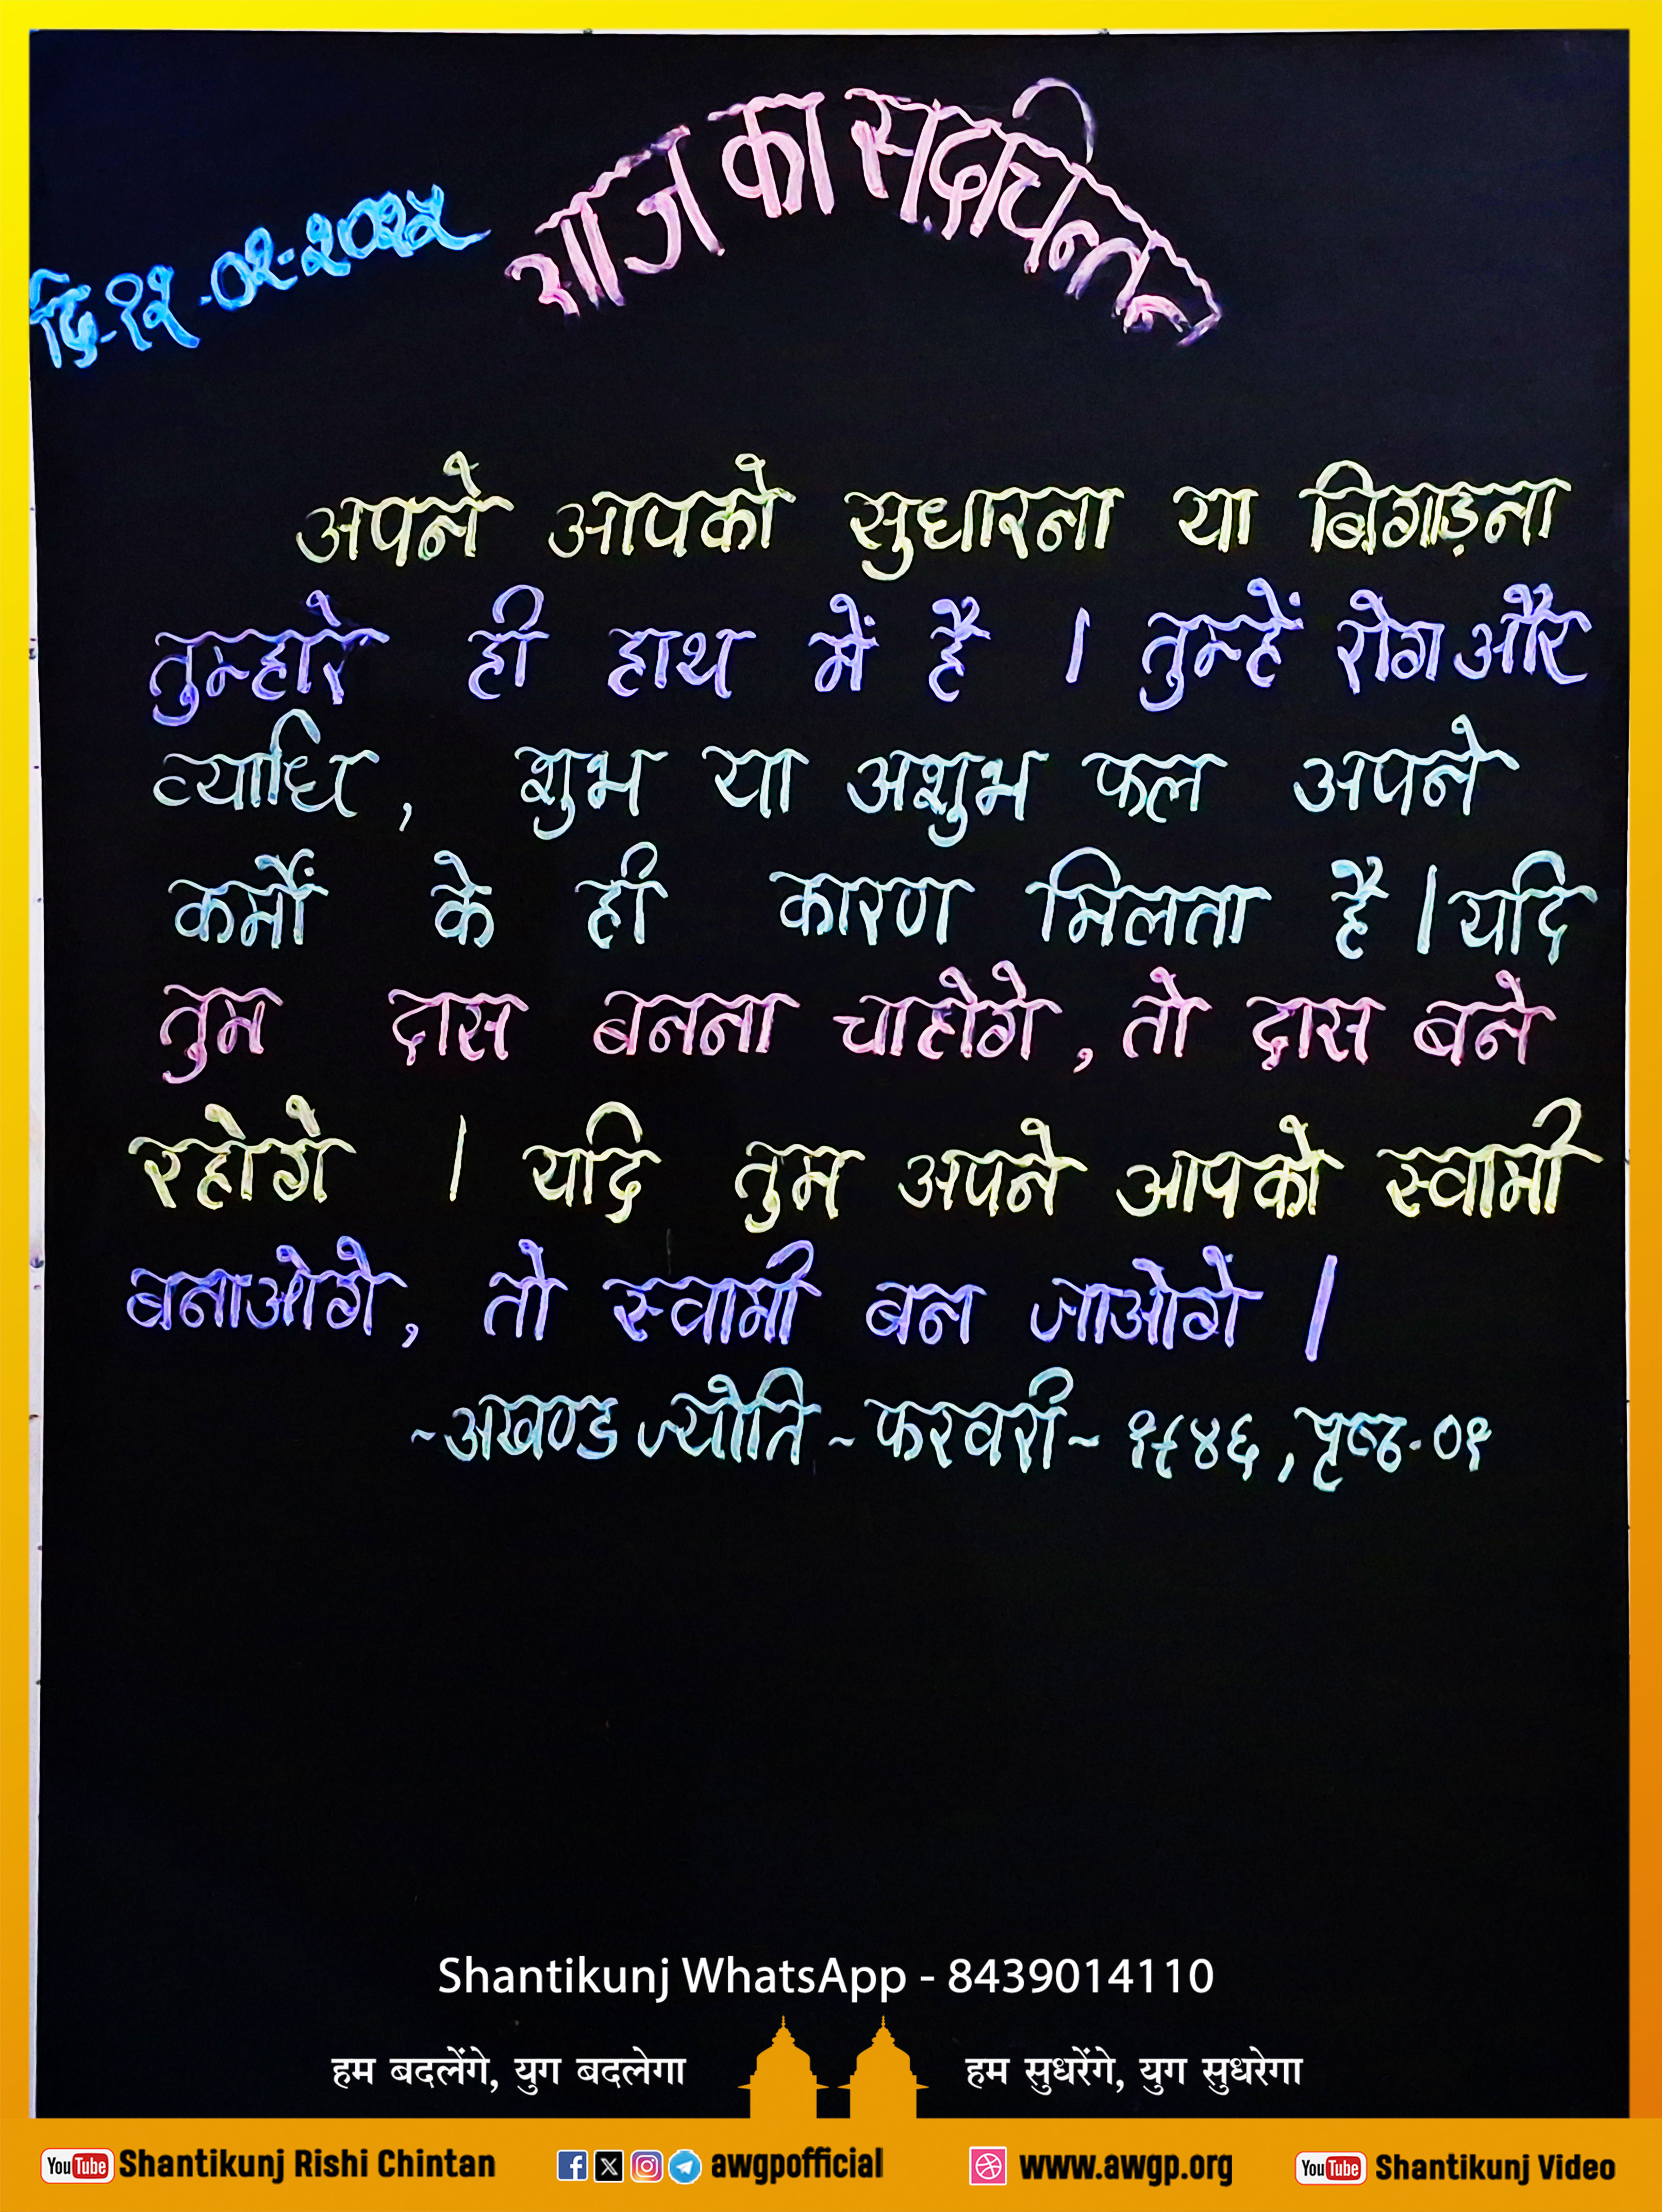 आज का सद्चिन्तन
दि-१२-०२-२०२५
अपने आपको सुधारना या बिगाड़ना
तुम्हारे ही हाथ में है । तुम्हें रोग और
व्याधि, शुभ या अशुभ फल अपने
कर्मों के ही कारण मिलता है । यदि
तुम दास बनना चाहोगे, तो दास बने
रहोगे । यदि तुम अपने आपको स्वामी
बनाओगे, तो स्वामी बन जाओगे ।
~अखण्ड ज्योति ~ फरवरी ~ १९४६, पृष्ठ-०१
Shantikunj WhatsApp - 8439014110
हम बदलेंगे, युग बदलेगा हम सुधरेंगे, युग सुधरेगा
YouTube Shantikunj Rishi Chintan awgpofficial www.awgp.org YouTube Shantikunj Video